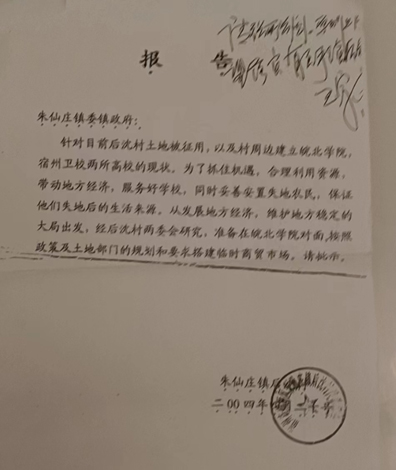 报 告
朱仙庄镇委镇政府:
针对目前后沈村土地被征用,以及村周边建立皖北学院,
宿州卫校两所高校的现状。为了抓住机遇,合理利用资源,
带动地方经济,服务好学校,同时妥善安置失地农民,保证
他们失地后的生活来源。从发展地方经济,维护地方稳定的
大局出发,经后沈村两委会研究,准备在皖北学院对面,按照
政策及土地部门的规划和要求搭建临时商贸市场。请批示。
朱仙庄镇后
二00四年